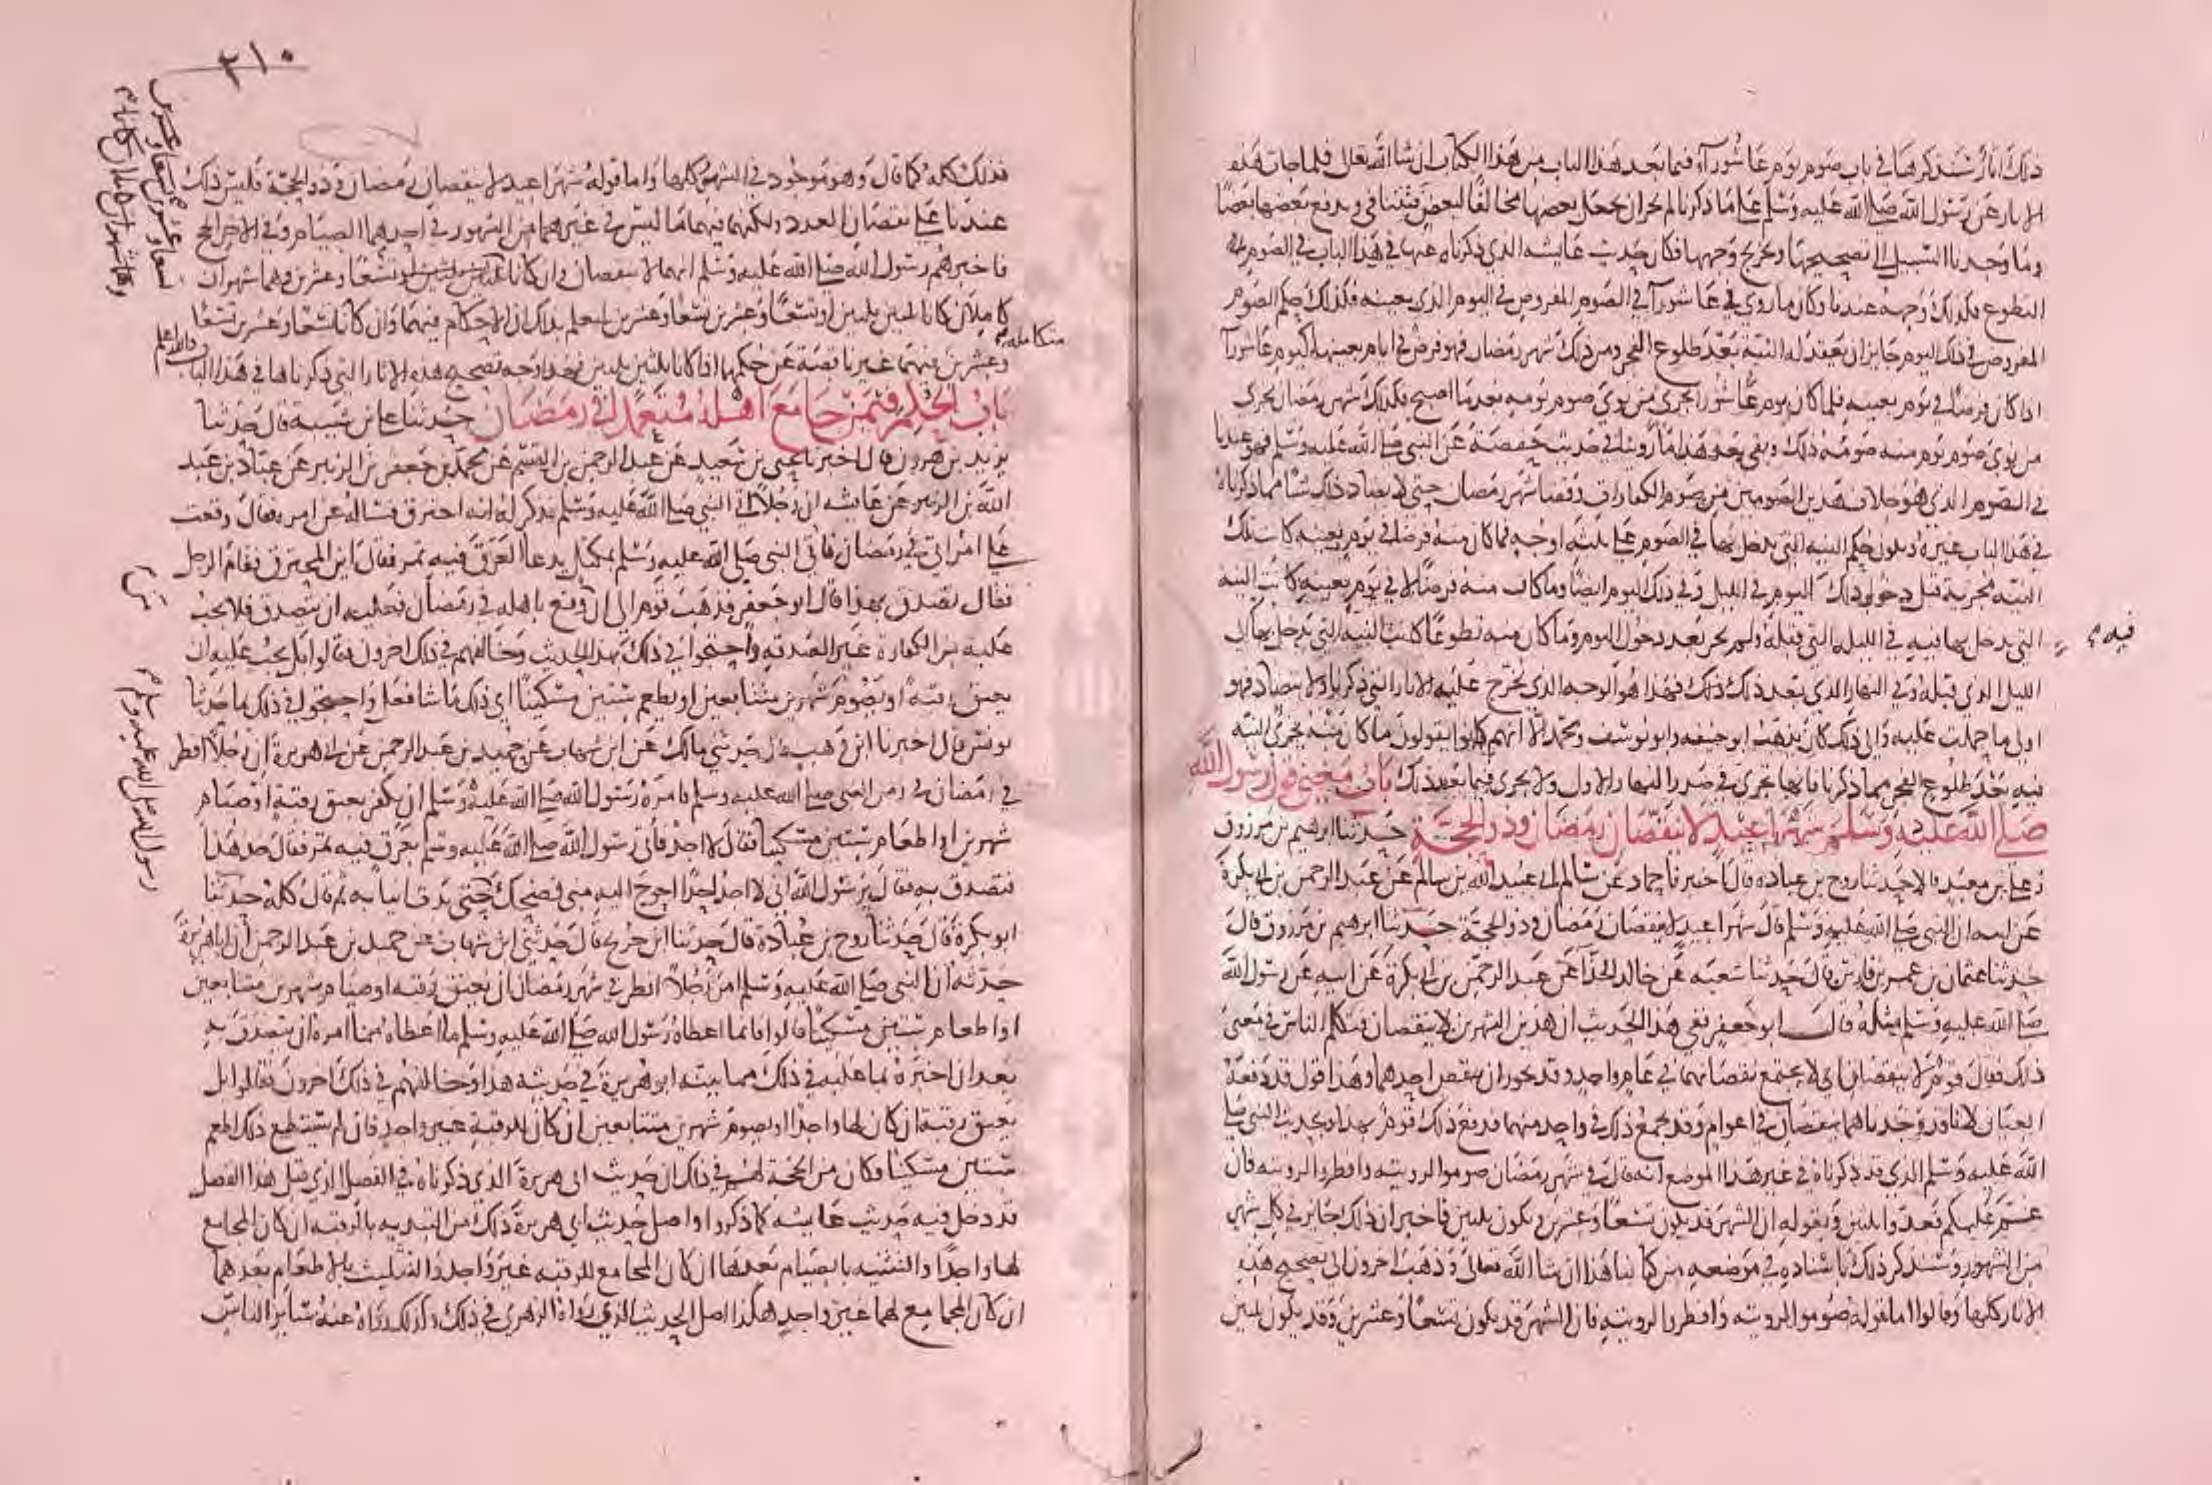 ذلك انا سنذكرها في باب صوم يوم عاشوراء فيما بعد هذا الباب من هذا الكتاب ان شا الله تعالى فلما جات هذه
الاثار عن رسول الله صلى الله عليه وسلم على ما ذكرنا لم يجز ان نجعل بعضها مخالفا لبعض فتتنافى ويدفع بعضها بعضا
وما وجدنا السبيل الى تصحيحها وتخريج وجهها فكان حديث عايشه الذي ذكرناه عنها في هذا الباب في الصوم
التطوع فكذلك وجهه عندنا وكان ما روي في عاشورآ في الصوم المفروض في اليوم الذي بعينه فكذلك حكم الصوم
المفروض في ذلك اليوم جايز ان يعقد له النية بعد طلوع الفجر ومن ذلك شهر رمضان فهو فرض في ايام بعينها كيوم عاشورآ
اذا كان فرضا في يوم بعينه فلما كان يوم عاشورا يجزي من نوى صوم يومه بعد ما اصبح فكذلك شهر رمضان يجزي
من نوى صوم يوم منه صومه ذلك وبقي بعد هذا ما روينا في حديث حفصة عن النبي صلى الله عليه وسلم فهو عندنا
في الصوم الذي هو خلاف هذين الصومين من صوم الكفارات وقضا شهر رمضان حتى لا يضاد ذلك شيا مما ذكرناه
في هذا الباب غيره ويكون حكم النيه التي يدخل بها في الصوم على ثلثة اوجه فما كان منه فرضا في يوم بعينه كانت تلك
النيه مجزية قبل دخول ذلك اليوم في الليل وفي ذلك اليوم ايضا وما كان منه فرضا لا في يوم بعينه كانت النيه
التي يدخل بها فيه في الليلة التي قبله ولم يجز بعد دخول اليوم وما كان منه تطوعا كانت النية التي يدخل بها في
فيه
الليل الذي قبله وفي النهار الذي بعد ذلك فهذا هو الوجه الذي يخرج عليه الاثار التي ذكرنا ولا يتضاد فهو
اولى ما حملت عليه والى ذلك كان يذهب ابو حنيفه وابو يوسف ومحمد الا انهم كانوا يقولون ما كان منه يجزي النية
فيه بعد طلوع الفجر مما ذكرنا فانها تجزي في صدر النهار الاول ولا يجزي فيما بعد ذلك باب معنى قول رسول الله
صلى الله عليه وسلم شهرا عيد لا ينقصان رمضان وذو الحجة حدثنا ابرهيم بن مرزوق
وعلي بن معبد قالا حدثنا روح بن عباده قال اخبرنا حماد عن سالم ابي عبيد الله بن سالم عن عبد الرحمن بن ابي بكرة
عن ابيه ان النبي صلى الله عليه وسلم قال شهرا عيد لا ينقصان رمضان وذو الحجة حدثنا ابرهيم بن مرزوق قال
حدثنا عثمان بن عمر بن فارس قال حدثنا شعبه عن خالد الحذا عن عبد الرحمن بن ابي بكرة عن ابيه عن رسول الله
صلى الله عليه وسلم مثله قال ابو جعفر ففي هذا الحديث ان هذين الشهرين لا ينقصان فتكلم الناس في معنى
ذلك فقال قوم لا ينقصان اي لا يجتمع نقصانهما في عام واحد وقد يجوز ان ينقص احدهما وهذا قول قد دفعه
العيان لانا قد وجدناهما ينقصان في اعوام وقد يجمع ذلك في واحد منهما فدفع ذلك قوم بهذا وبحديث النبي صلى
الله عليه وسلم الذي قد ذكرناه في غير هذا الموضع انه قال في شهر رمضان صوموا لرويته وافطروا لرويته فان
غم عليكم فعدوا ثلثين وبقوله ان الشهر قد يكون تسعا وعشرين ويكون ثلثين فاخبر ان ذلك جايز في كل شهر
من الشهور وسنذكر ذلك باسناده في موضعه من كتابنا هذا ان شا الله تعالى وذهب اخرون الى تصحيح هذه
الاثار كلها وقالوا اما قوله صوموا لرويته وافطروا لرويته فان الشهر قد يكون تسعا وعشرين وقد يكون ثلثين
٢١٠
فذلك كله كما قال وهو موجود في الشهور كلها واما قوله شهرا عيد لا ينقصان رمضان وذو الحجة فليس ذلك
عندنا على نقصان العدد ولكنهما فيهما ما ليس في غيرهما من الشهور في احدهما الصيام وفي الاخر الحج
فاخبرهم رسول الله صلى الله عليه وسلم انهما لا ينقصان وان كانا تسعا وعشرين وهما شهران
كاملان كانا ثلثين ثلثين او تسعا وعشرين تسعا وعشرين ليعلم بذلك ان الاحكام فيهما وان كانا تسعا وعشرين تسعا
متكامله
وعشرين فيهما غير ناقصة عن حكمها اذا كانا ثلثين ثلثين فهذا وجه تصحيح هذه الاثار التي ذكرناها في هذا الباب والله اعلم
باب الحكم فيمن جامع اهله متعمدا في رمضان حدثنا علي بن شيبة قال حدثنا
يزيد بن هرون قال اخبرنا يحيى بن سعيد عن عبد الرحمن بن القسم عن محمد بن جعفر بن الزبير عن عباد بن عبد
الله بن الزبير عن عايشه ان رجلا اتى النبي صلى الله عليه وسلم فذكر له انه احترق فساله عن امره فقال وقعت
على امراتي في رمضان فاتي النبي صلى الله عليه وسلم بمكتل يدعا العرق فيه تمر فقال اين المحترق فقام الرجل
فقال تصدق بهذا قال ابو جعفر فذهب قوم الى ان من وقع باهله في رمضان فعليه ان يتصدق فلا يجب
عليه من الكفارة غير الصدقه واحتجوا في ذلك بهذا الحديث وخالفهم في ذلك اخرون فقالوا بل يجب عليه ان
يعتق رقبة او يصوم شهرين متتابعين او يطعم ستين مسكينا اي ذلك ما شا فعل واحتجوا في ذلك ما حدثنا
يونس قال اخبرنا ابن وهب قال حدثني مالك عن ابن شهاب عن حميد بن عبد الرحمن عن ابي هريرة ان رجلا افطر
في رمضان في زمن النبي صلى الله عليه وسلم فامره رسول الله صلى الله عليه وسلم ان يكفر بعتق رقبة او صيام
شهرين او اطعام ستين مسكينا فقال لا اجد فأتى رسول الله صلى الله عليه وسلم بعرق فيه تمر فقال خذ هذا
فتصدق به فقال يرسول الله اني لا اجد احدا احوج اليه مني فضحك حتى بدت انيابه ثم قال كله حدثنا
رسول الله صلى الله عليه وسلم
ابو بكرة قال حدثنا روح بن عبادة قال حدثنا ابن جريج قال حدثني ابن شهاب عن حميد بن عبد الرحمن ان ابا هريرة
حدثه ان النبي صلى الله عليه وسلم امر رجلا افطر في شهر رمضان ان يعتق رقبه او صيام شهرين متتابعين
او اطعام ستين مسكينا قالوا فانما اعطاه رسول الله صلى الله عليه وسلم ما اعطاه مما امره ان يتصدق به
بعد ان اخبره بما عليه في ذلك مما بينه ابو هريرة في حديثه هذا وخالفهم في ذلك اخرون فقالوا بل
يعتق رقبة ان كان لها واجدا او يصوم شهرين متتابعين ان كان للرقبة غير واجد فان لم يستطع ذلك اطعم
ستين مسكينا وكان من الحجة لهم في ذلك ان حديث ابي هريرة الذي ذكرناه في الفصل الذي قبل هذا الفصل
قد دخل فيه حديث عايشه كما ذكروا واصل حديث ابي هريرة ذلك من التبديه بالرقبه ان كان المجامع
لها واجدا والتثنيه بالصيام بعدها ان كان المجامع للرقبه غير واجد والتثليث بالاطعام بعدهما
ان كان المجامع لهما غير واجد هكذا اصل الحديث الذي رواه الزهري في ذلك وكذلك رواه عنه سائر الناس